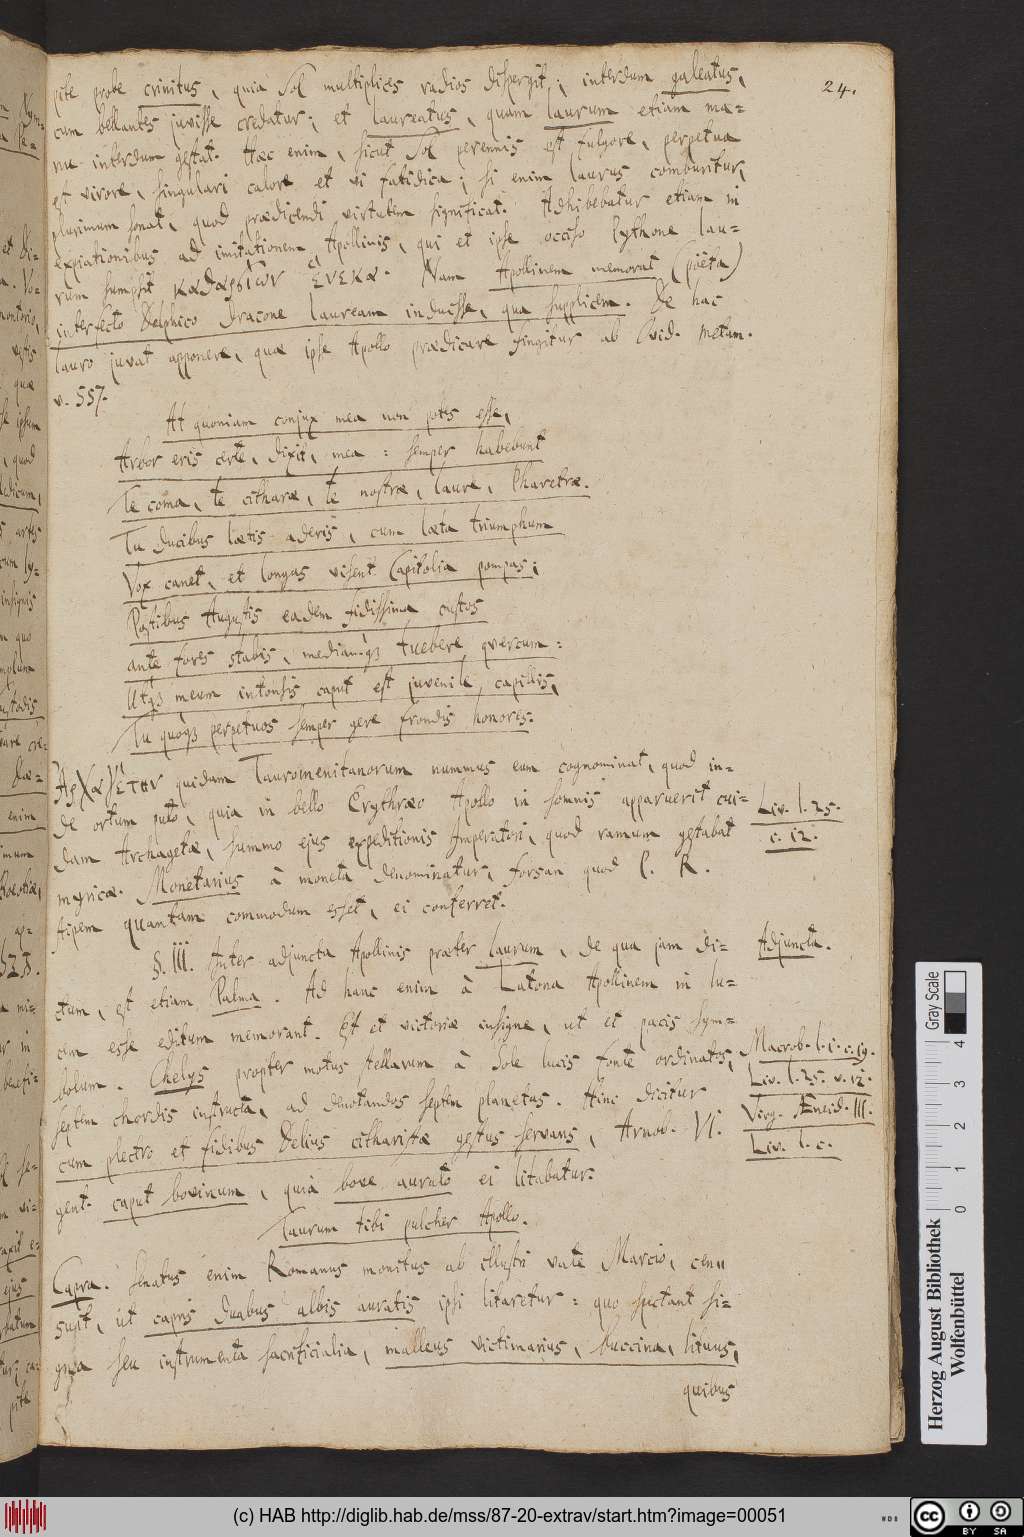 24.
pite probe crinitus, quia Sol multiplices radios dispergit; interdum galeatus,
cum bellantes juvisse credatur; et laureatus, quam laurum etiam ma=
nu interdum gestat. Hæc enim, sicut Sol perennis est fulgore, perpetua
est virore, singulari calore et vi fatidica; si enim laurus comburitur,
plurimum sonat, quod prædicendi virtutem significat. Adhibebatur etiam in
expiationibus ad imitationem Apollinis, qui et ipse occiso Pythone lau=
rum sumpsit καθαρσίων ἕνεκα. Nam Apollinem memorat (poëta)
interfecto Delphico Dracone lauream induisse, qua supplicem. De hac
lauro juvat apponere, quæ ipse Apollo prædicare fingitur ab Ovid. Metam.
v. 557.
At quoniam conjux mea non potes esse,
Arbor eris certe, dixit, mea: semper habebunt
Te coma, te citharæ, te nostræ, laure, Pharetræ.
Tu ducibus lætis aderis, cum læta triumphum
Vox canet, et longas visent Capitolia pompas;
Postibus Augustis eadem fidissima custos
ante fores stabis, mediamq3 tuebere quercum:
Utq3 meum intonsis caput est juvenile capillis,
Tu quoq3 perpetuos semper gere frondis honores.
Ἀρχαγέτην quidam Tauromenitanorum nummus eum cognominat, quod in=
de ortum puto, quia in bello Erythræo Apollo in somnis apparuerit cui=
dam Archagetæ, summo ejus expeditionis Imperatori, quod ramum gestabat
myricæ. Monetarius à moneta denominatur, forsan quod P. R.
stipem quantam commodum esset, ei conferret.
Liv. l. 25.
c. 12.
§. III. Inter adjuncta Apollinis præter laurum, de qua jam di=
ctum, est etiam Palma. Ad hanc enim à Latona Apollinem in lu=
cem esse editum memorant. Est et victoriæ insigne, ut et pacis sym=
bolum. Chelys propter motus stellarum à Sole lucis fonte ordinatos,
septem chordis instructa, ad denotandos septem planetas. Hinc dicitur
cum plectro et fidibus Delius citharistæ gestus servans, Arnob. VI.
gent. caput bovinum, quia bove aurato ei litabatur.
Taurum tibi pulcher Apollo.
Capra. Senatus enim Romanus monitus ab illustri vate Marcio, cenu
suit, ut capris duabus albis auratis ipsi litaretur: quo spectant si=
gna seu instrumenta sacrificialia, malleus victimarius, buccina, lituus,
quibus
Adjuncta.
Macrob. l. 1. c. 19.
Liv. l. 25. v. 12.
Virg. Æneid. III.
Liv. l. c.
Gray Scale
0 1 2 3 4
Herzog August Bibliothek
Wolfenbüttel
(c) HAB http://diglib.hab.de/mss/87-20-extrav/start.htm?image=00051
cc BY SA